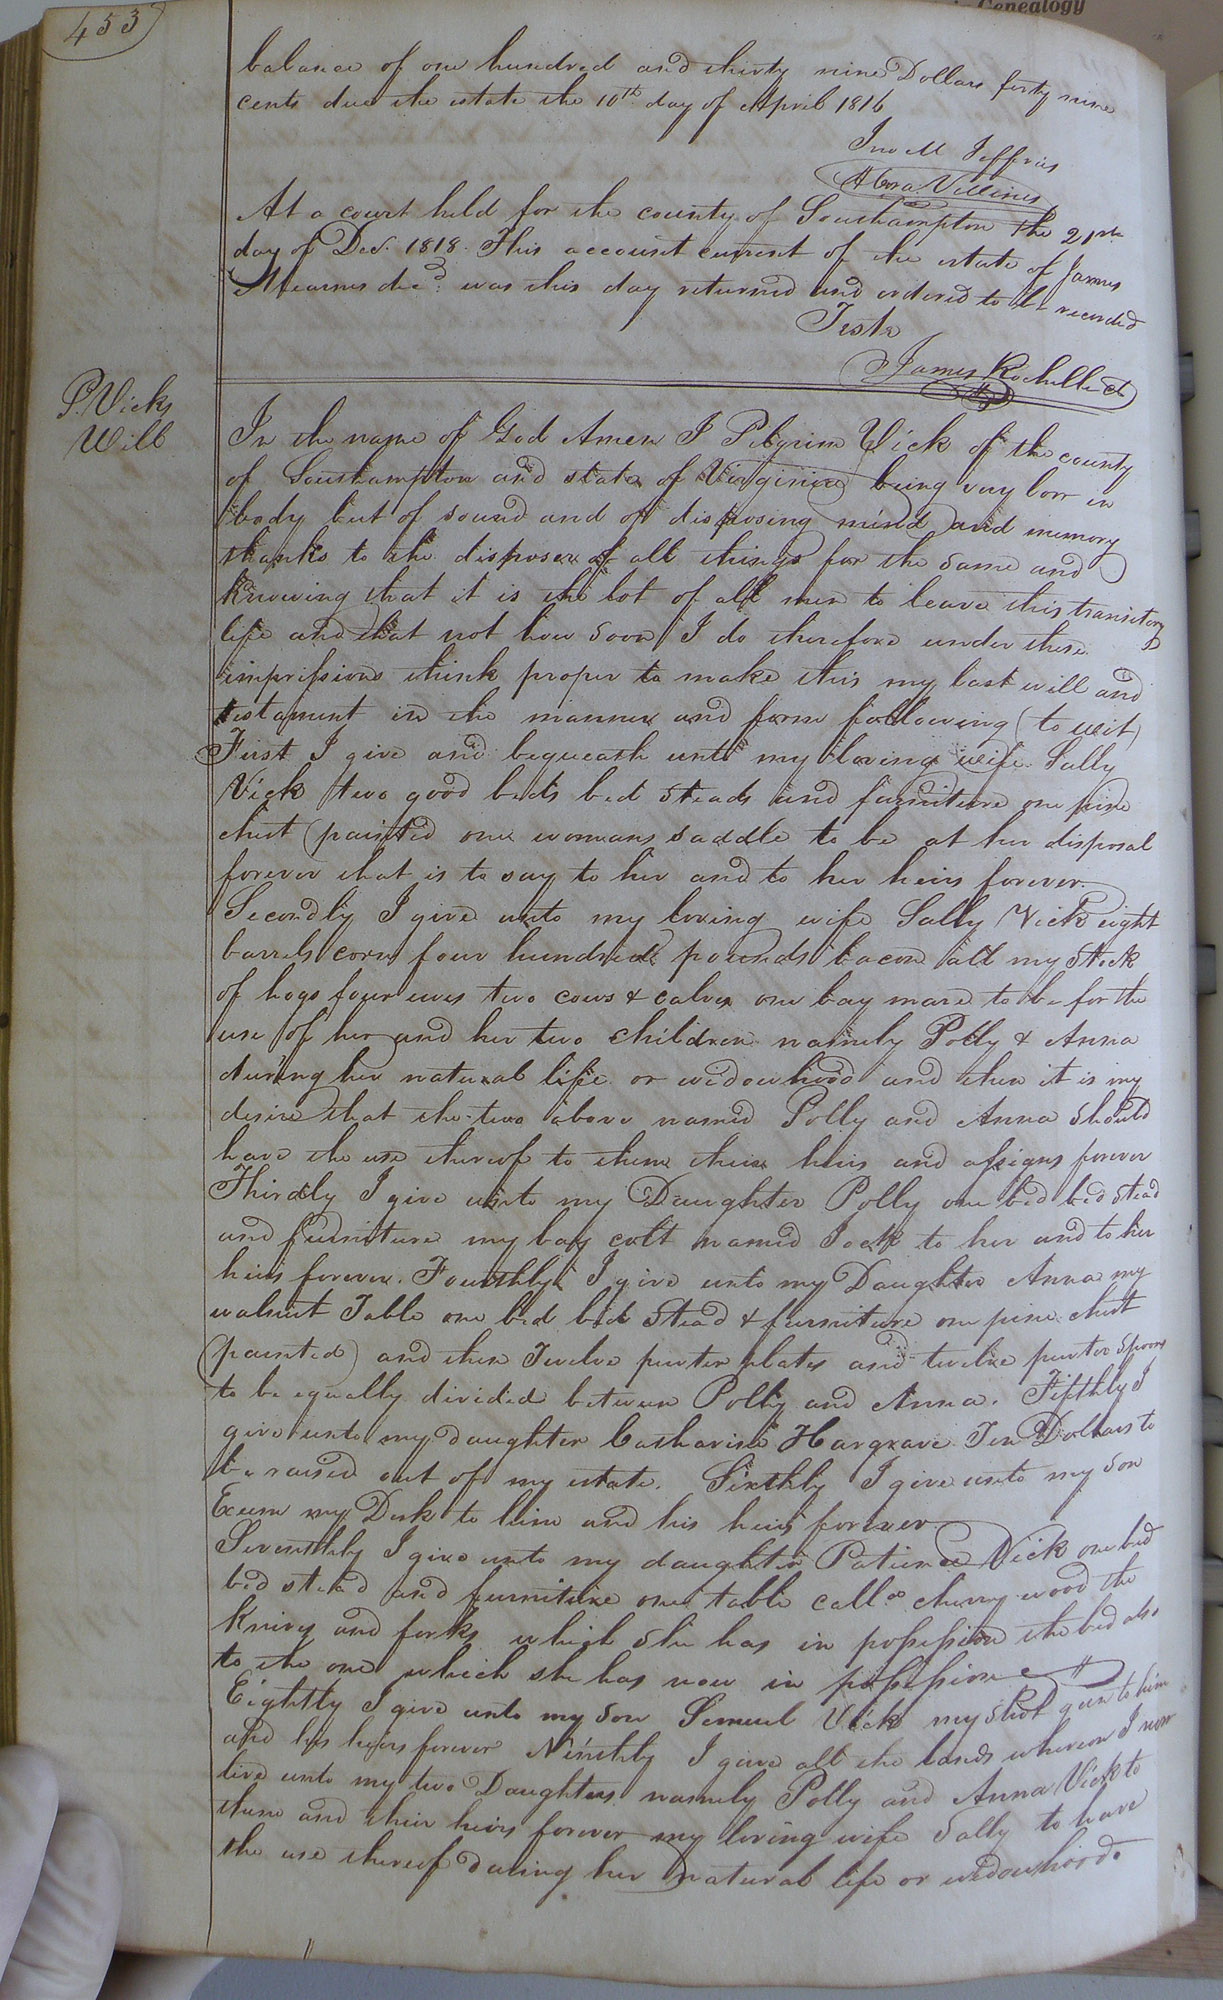 in Genealogy
453
balance of one hundred and thirty nine Dollars forty nine
cents due the estate the 10th day of April 1816
Jno M Jeffries
At a court held for the county of Southampton the 21st
day of Decr. 1818. This account current of the estate of James
decd. was this day returned and ordered to be recorded
Teste
James Rochelle Cl
P. Vicks
Will
In the name of God Amen I Pilgrim Vick of the county
of Southampton and state of Virginia being very low in
body but of sound and of disposing mind and memory
thanks to the disposer of all things for the same and
Knowing that it is the lot of all men to leave this transitory
life and that not how soon I do therefore under these
impressions think proper to make this my last will and
testament in the manner and form following (to wit)
First I give and bequeath unto my loving wife Sally
Vick two good beds bed steads and furniture one pine
chest (painted one womans saddle to be at her disposal
forever that is to say to her and to her heirs forever.
Secondly I give unto my loving wife Sally Vick eight
barrels corn four hundred pounds bacon all my stock
of hogs four ewes two cows & calves one bay mare to be for the
use of her and her two children namely Polly & Anna
during her natural life or widowhood and then it is my
desire that the two above named Polly and Anna should
have the use thereof to them their heirs and assigns forever
Thirdly I give unto my Daughter Polly one bed bed stead
and furniture my bay colt named Jack to her and to her
heirs forever. Fourthly I give unto my Daughter Anna my
walnut Table one bed bed stead & furniture one pine chest
(painted) and then Twelve pewter plates and twelve pewter spoons
to be equally divided between Polly and Anna. Fifthly I
give unto my daughter Catharine Hargrave Ten Dollars to
be raised out of my estate. Sixthly I give unto my son
Exum my Desk to him and his heirs forever
Seventhly I give unto my daughter Patience Vick one bed
bed stead and furniture one table calld cherry wood the
knives and forks which she has in possession the bed also
to the one which she has now in possession
Eightly I give unto my son Lemuel Vick my shot gun to him
and his heirs forever Ninthly I gave all the lands whereon I now
live unto my two Daughters namely Polly and Anna Vick to
them and their heirs forever my loving wife Sally to have
the use thereof during her natural life or widowhood.